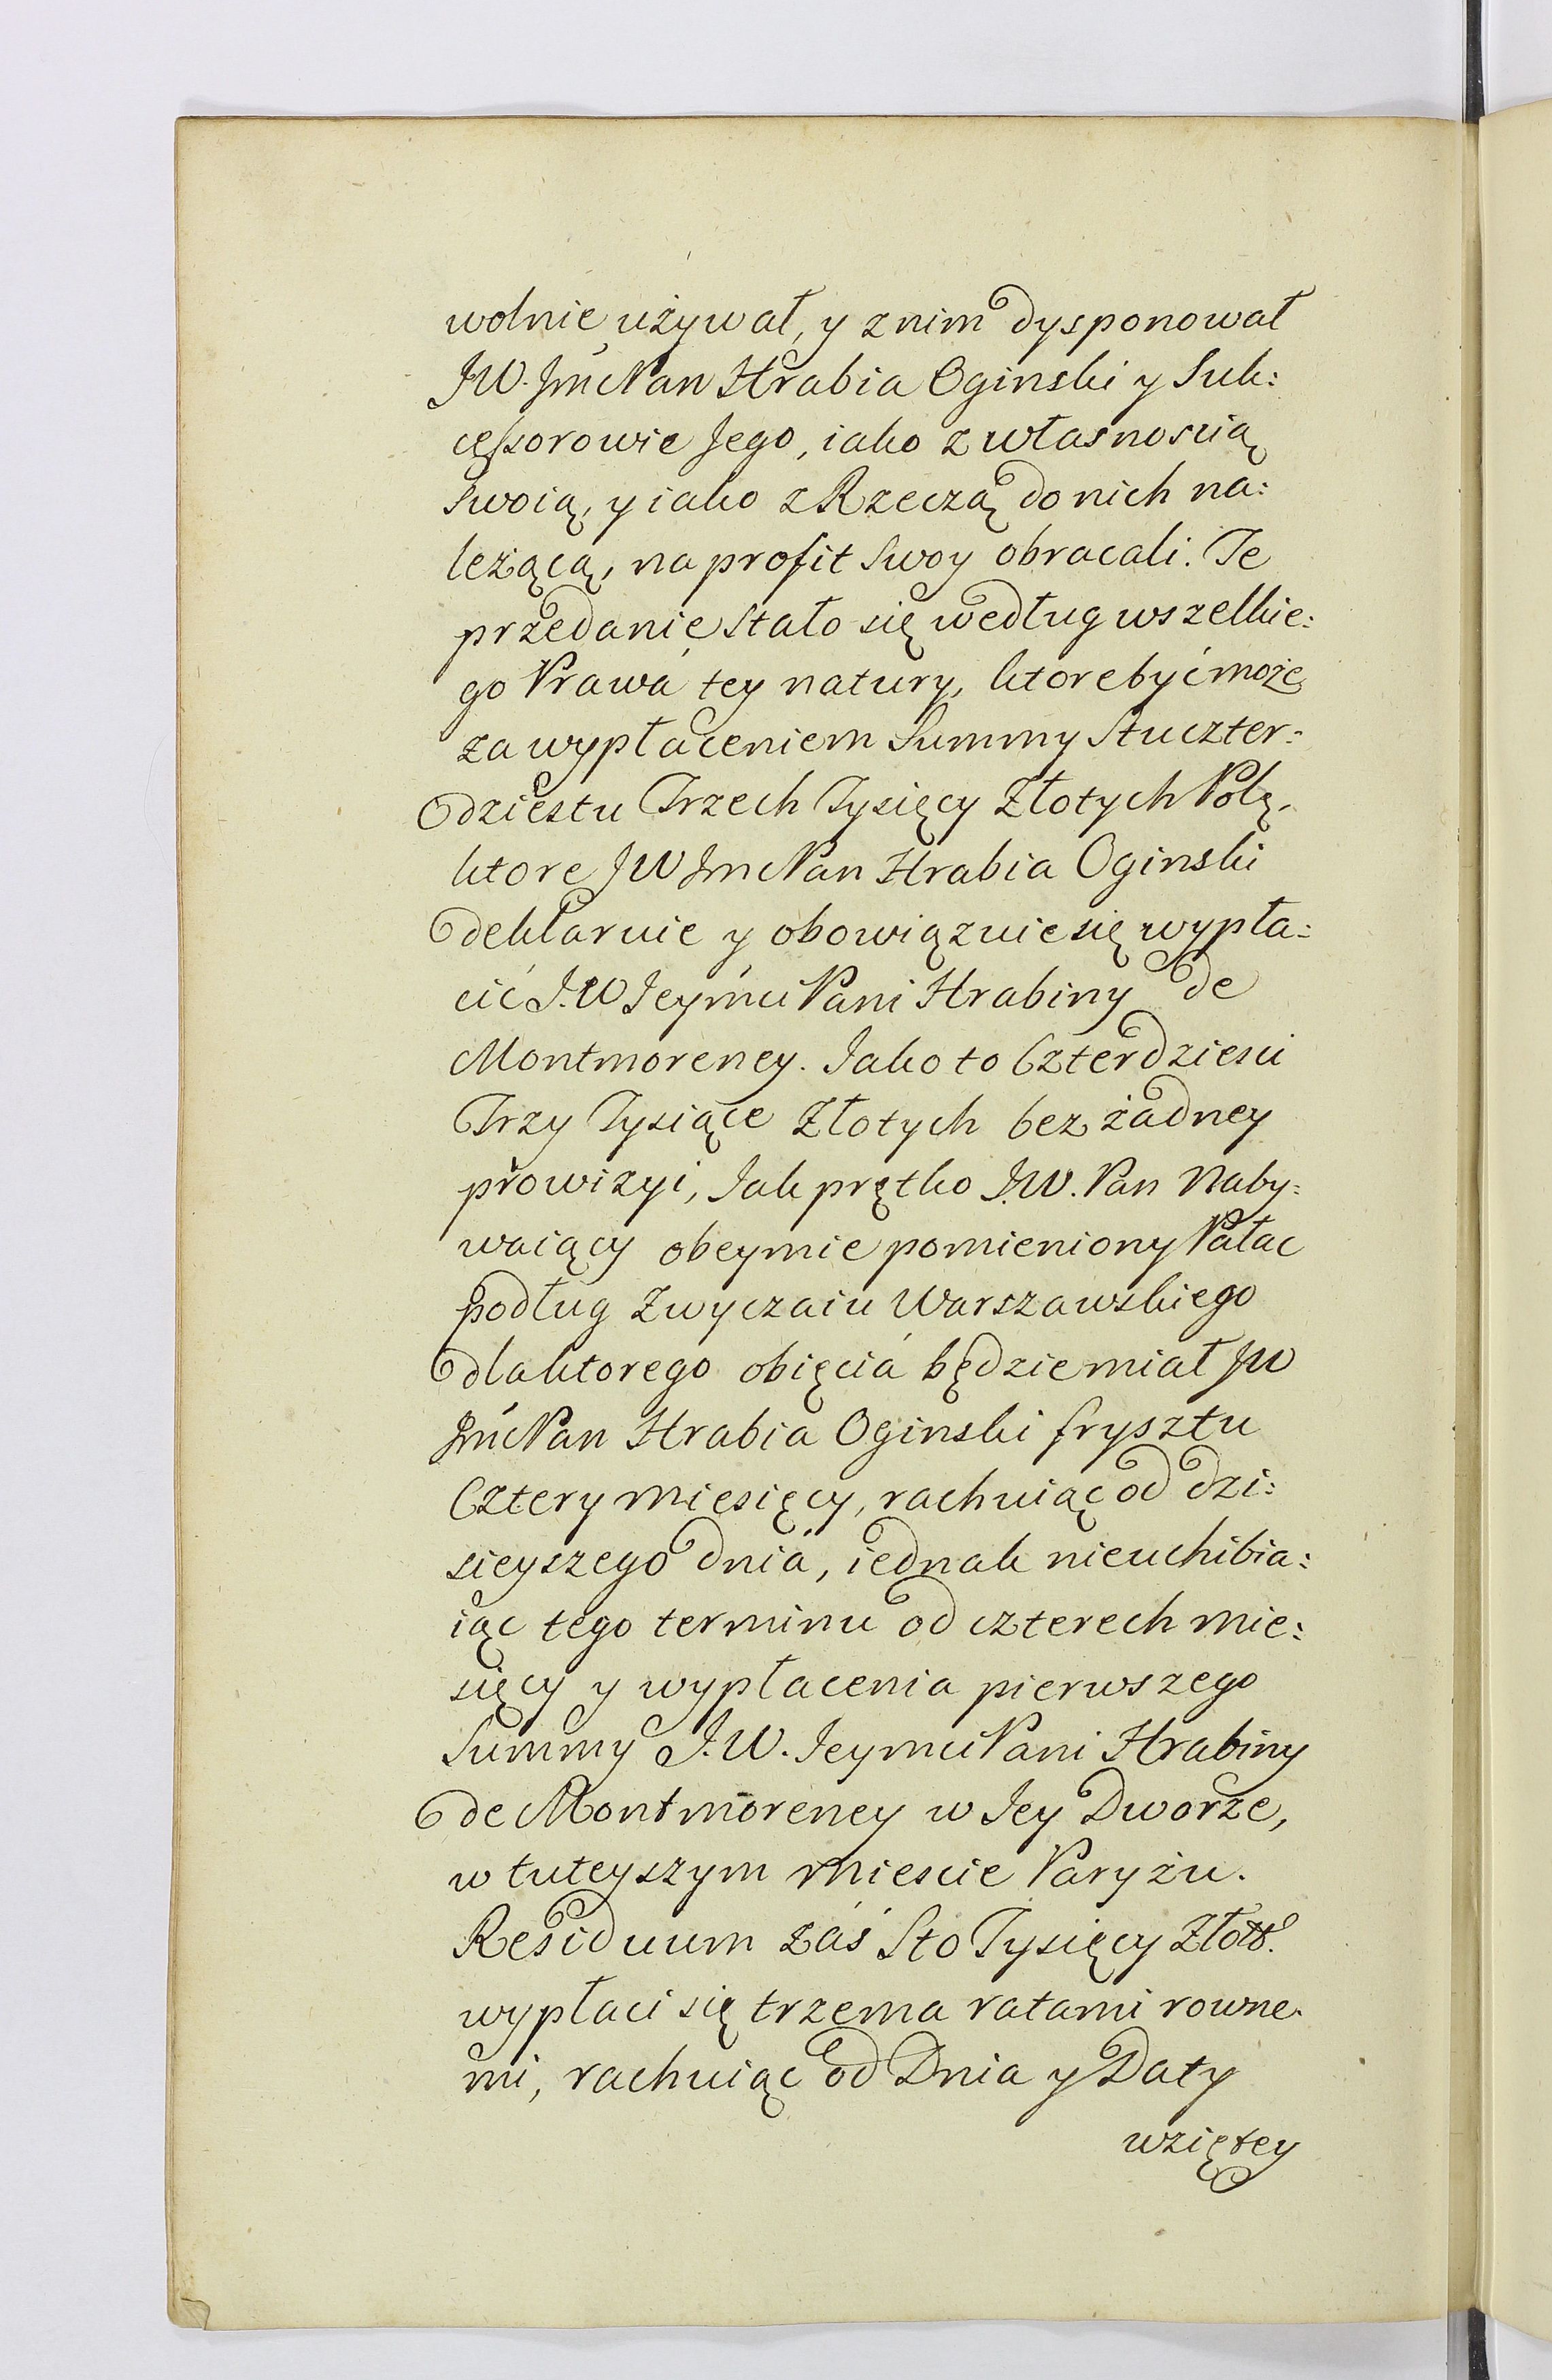 wolnie używał, y z nim dysponował
JW. Jmć Pan Hrabia Oginski y Suk:
cęssorowie Jego, iako z własnoscią
Swoią, y iako z Rzeczą do nich na:
leżącą, na profit Swoy obracali. Te
przedanie Stało się według wszelkie:
go Prawá tey natury, ktore być może
za wypłaceniem Summy Stuczter:
dziestu Trzech Tysięcy Złotych Polą,
ktore JW Jmc Pan Hrabia Oginski
deklaruie y obowiązuie się wypła:
cić J.W Jeymći Pani Hrabiny de
Montmoreney. Jako to Czterdziesci
Trzy Tysiące Złotych bez żadney
prowizyi, Jak prętko J.W. Pan Naby:
waiący obeymie pomieniony Pałac
podług Zwyczaiu Warszawskiego
dla ktorego obięciá będzie miał JW
Jmć Pan Hrabia Oginski frysztu
Cztery Miesięcy, rachuiąc od dzi:
sieyszego dniá, iednak nieuchibia:
iąc tego terminu od czterech Mie:
sięcy y wypłacenia pierwszego
Summy J.W. Jeymci Pani Hrabiny
de Montmoreney w Jey Dworze,
w tuteyszym Miescie Paryżu.
Residuum záś Sto Tysięcy Złott.
wypłaci się trzema ratami rowne.
mi, rachuiąc od Dnia y Daty
wziętey